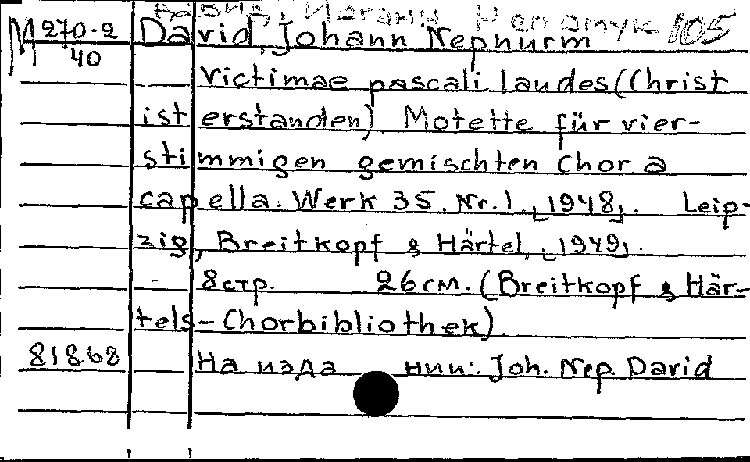 Давид, Иоганн Непомук 105
М 270-2/40
David, Johann Nephurm
Victimae pascali laudes (Christ
ist erstanden). Motette für vier-
stimmigen gemischten Chor a
capella. Werk 35, Nr. 1. [1948]. Leip-
zig, Breitkopf & Härtel, [1949].
8 стр. 26 см. (Breitkopf & Här-
tels-Chorbibliothek)
81868 На изда нии: Joh. Nep. David